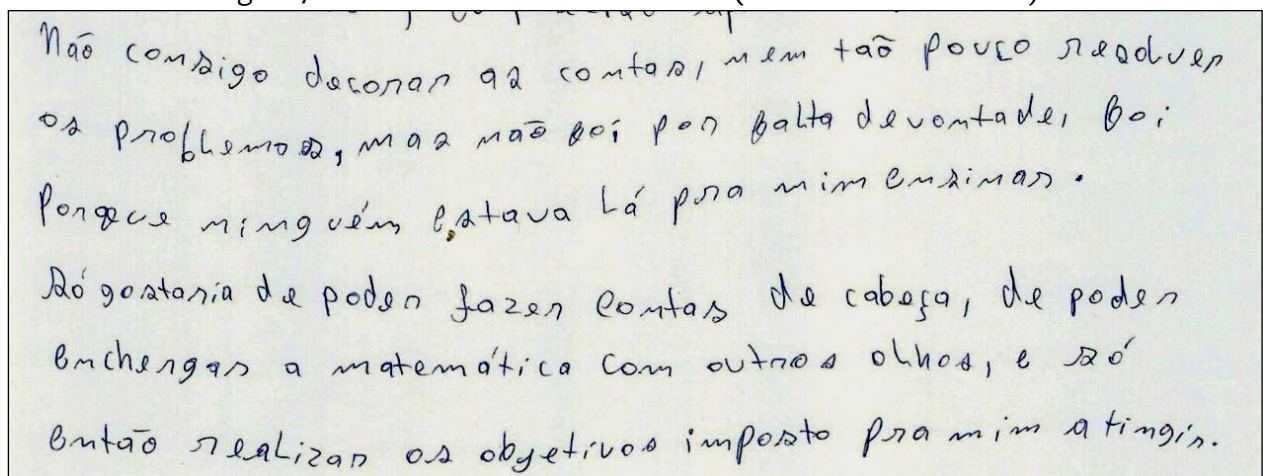 Não consigo decorar as contas, nem tão pouco resolver
os problhemas, mas não foi por falta de vontade, foi
Porque ninguém estava Lá pra mim ensinar.
Só gostaria de poder fazer contas de cabeça, de poder
enchergar a matemática com outros olhos, e só
então realizar os objetivos imposto pra mim atingir.